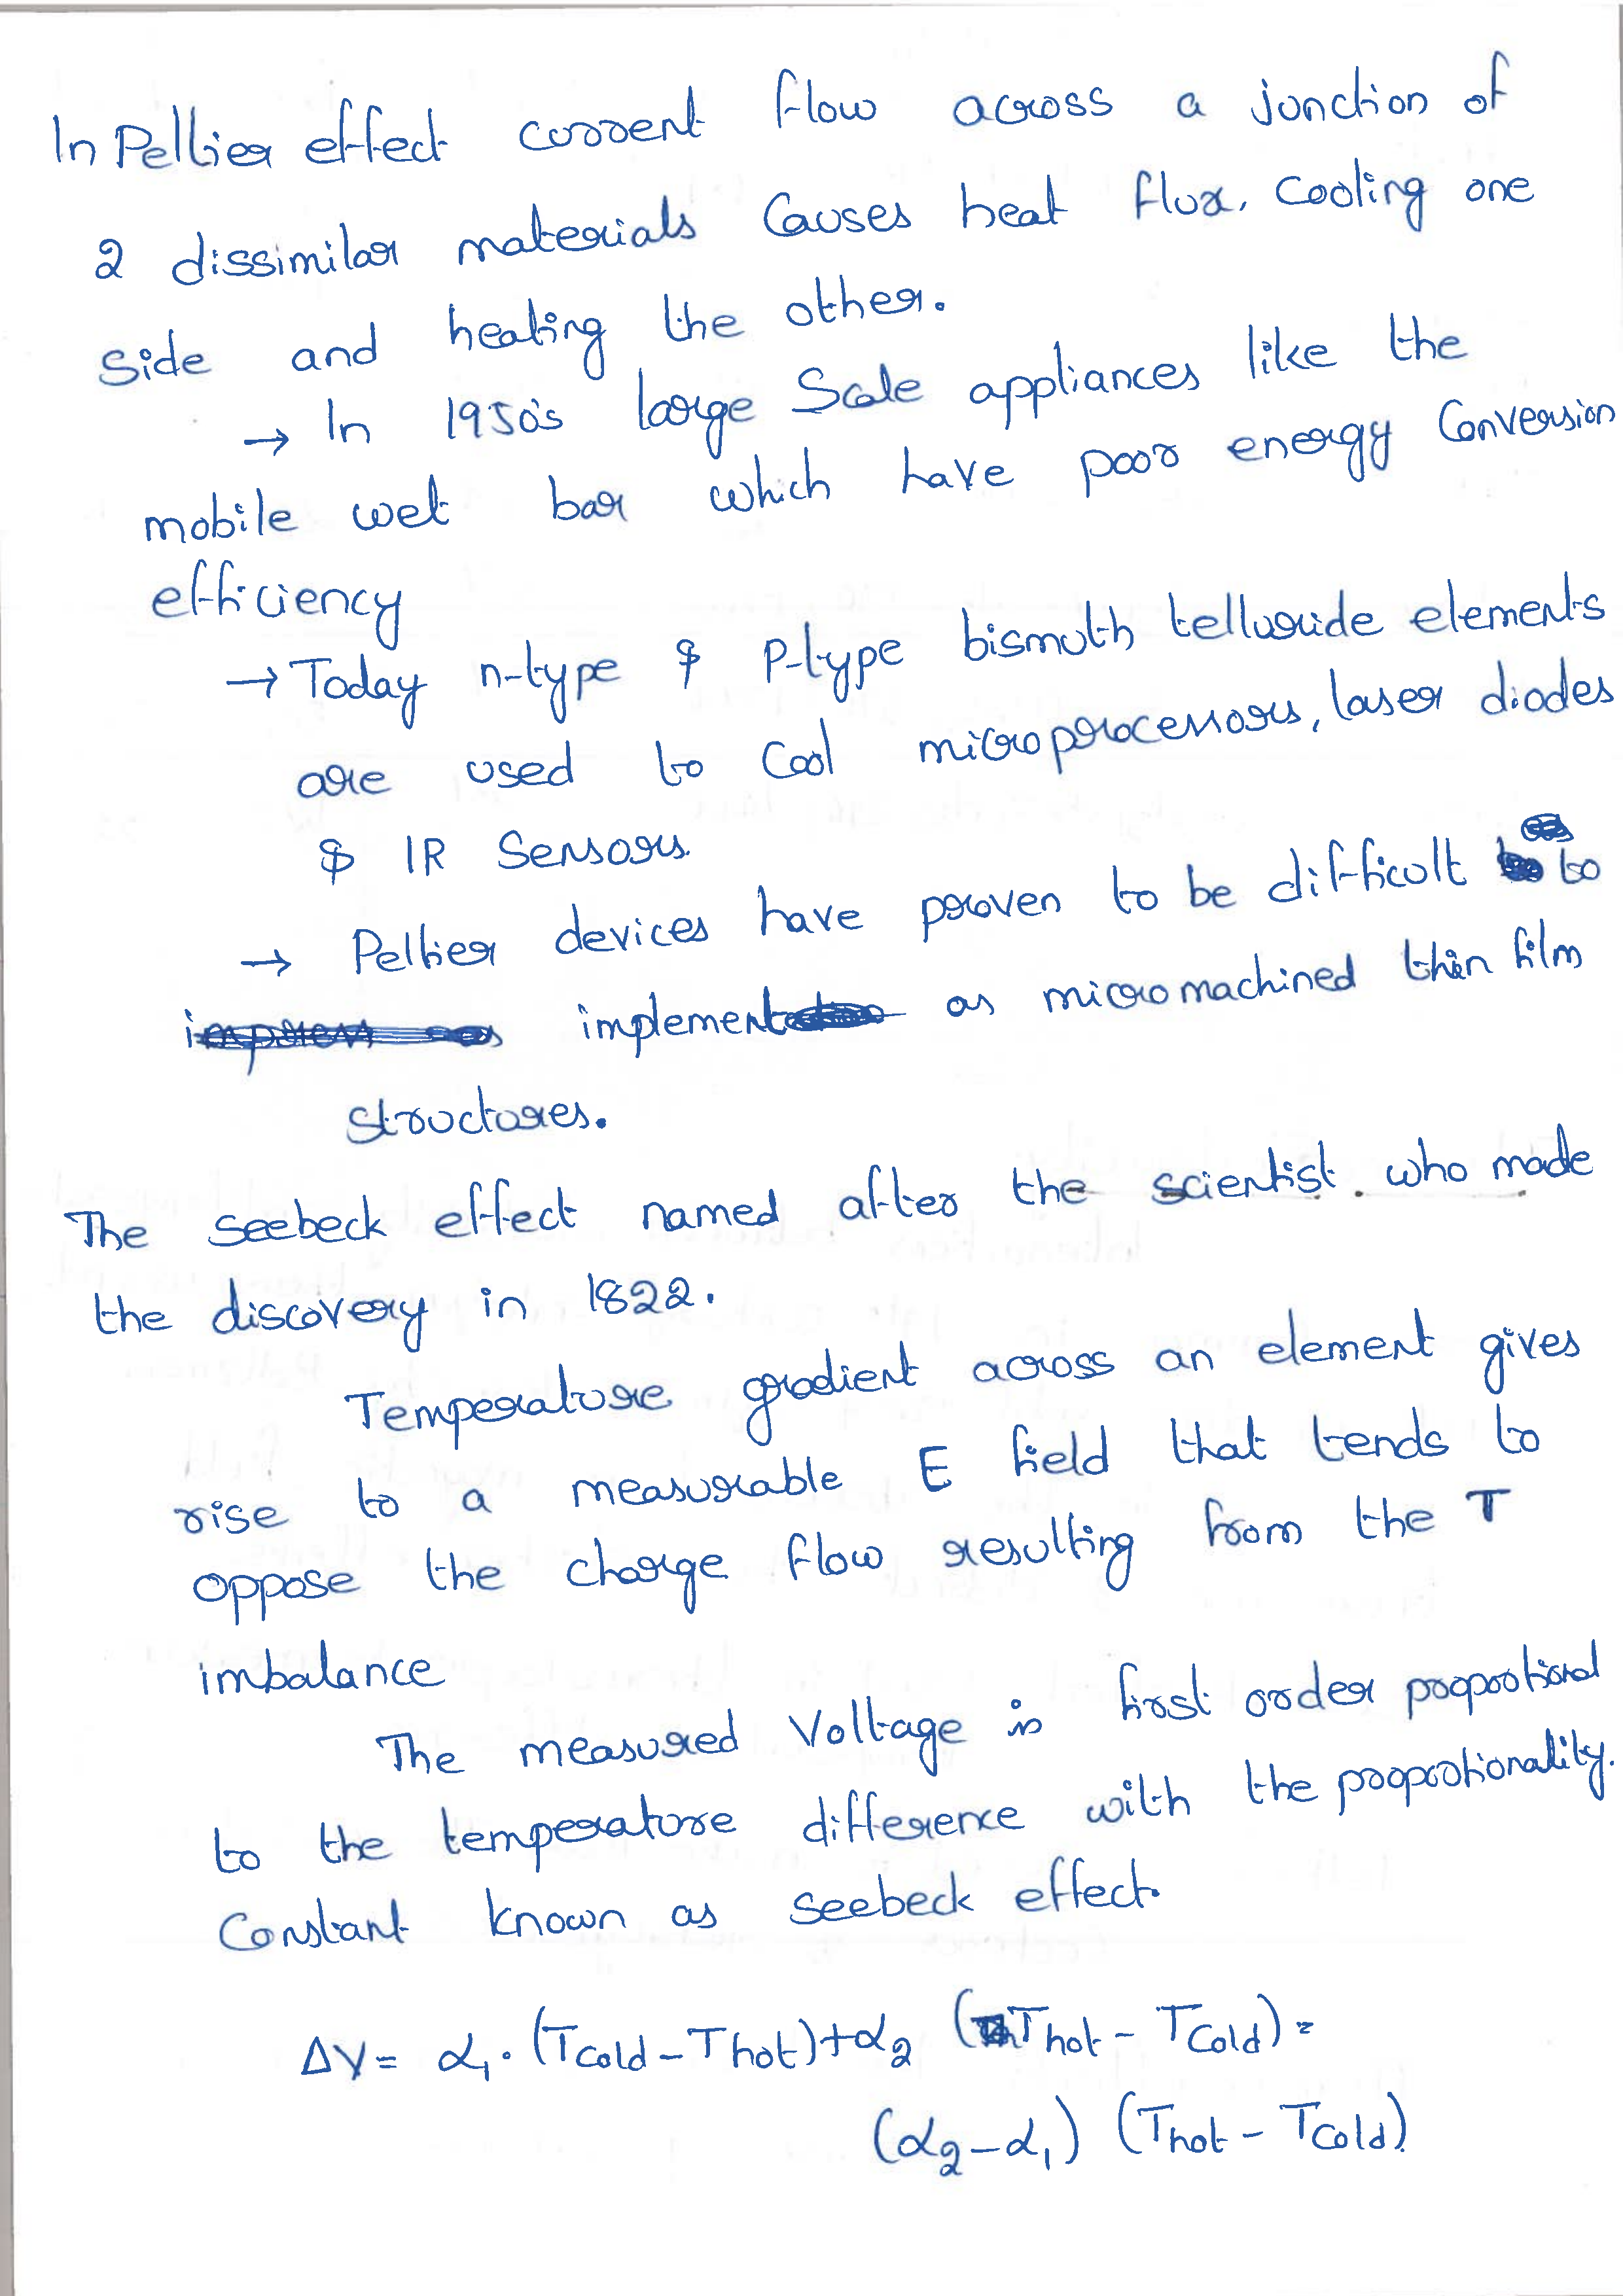 In Peltier effect current flow across a junction of
2 dissimilar materials Causes heat flux, Cooling one
Side and heating the other.
→ In 1950's large Scale appliances like the
mobile wet bar which have poor energy Conversion
efficiency
→ Today n-type & P-type bismuth telluride elements
are used to Cool microprocessors, laser diodes
& IR Sensors.
→ Peltier devices have proven to be difficult to
implement as micromachined thin film
structures.
The seebeck effect named after the scientist who made
the discovery in 1822.
Temperature gradient across an element gives
rise to a measurable E field that tends to
oppose the charge flow resulting from the T
imbalance
The measured Voltage is first order proportional
to the temperature difference with the proportionality.
Constant known as seebeck effect.
ΔV = α₁ . (Tcold - Thot) + α₂ (Thot - Tcold) =
(α₂ - α₁) (Thot - Tcold)